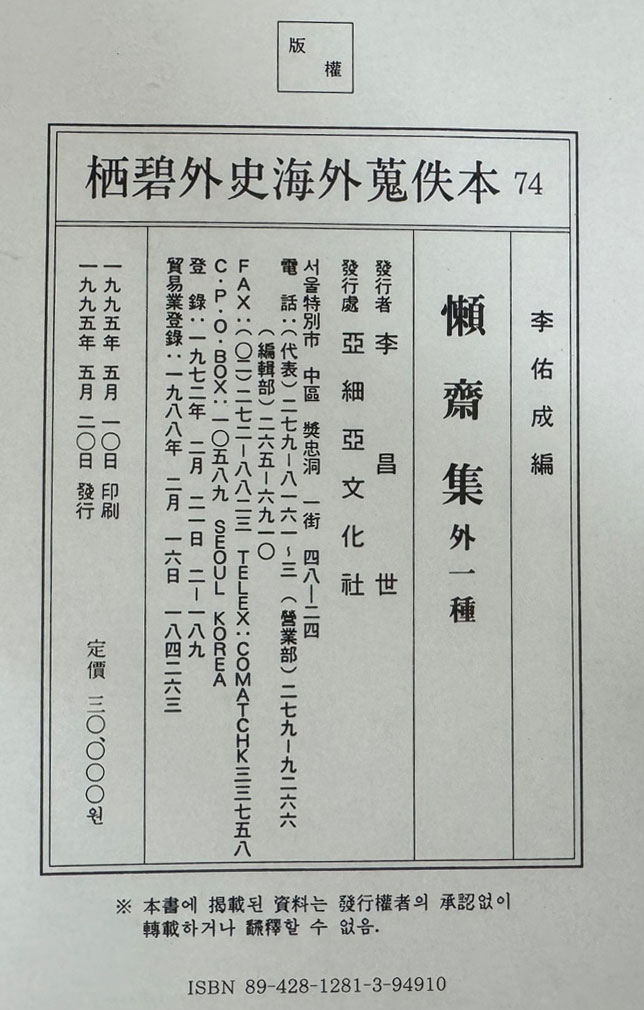 版
權
栖碧外史海外蒐佚本 74
李佑成編
懶齋集 外一種
發行者 李昌世
發行處 亞細亞文化社
서울特別市 中區 獎忠洞 一街 四八—二四
電話:(代表)二七九—八一六一~三 (營業部)二七九—九二六六
(編輯部)二六五—六九一〇
FAX:(〇二)二七二—八八二三 TELEX:COMATCHK三三七五八
C.P.O.BOX:一〇五八九 SEOUL KOREA
登錄:一九七二年 二月 二一日 二—一八九
貿易業登錄:一九八八年 二月 一六日 一八四二六三
一九九五年 五月 一〇日 印刷
一九九五年 五月 二〇日 發行
定價 三〇,〇〇〇원
※ 本書에 揭載된 資料는 發行權者의 承認없이
轉載하거나 飜譯할 수 없음.
ISBN 89-428-1281-3-94910